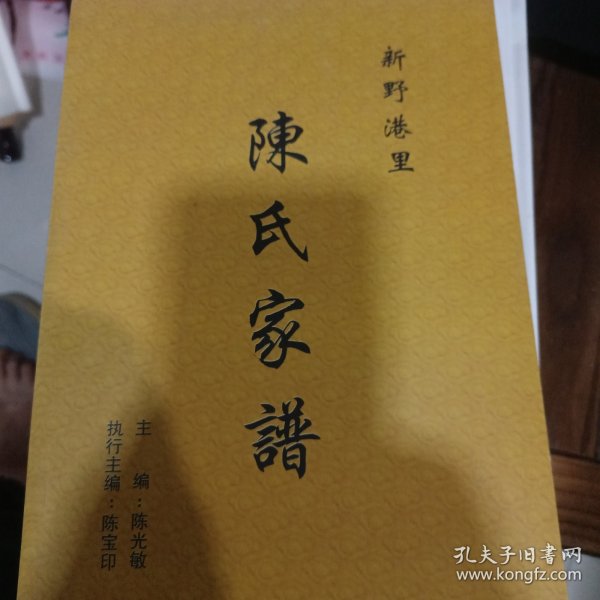 新野港里
陳氏家譜
主 编：陈光敏
执行主编：陈宝印
孔夫子旧书网
www.kongfz.com